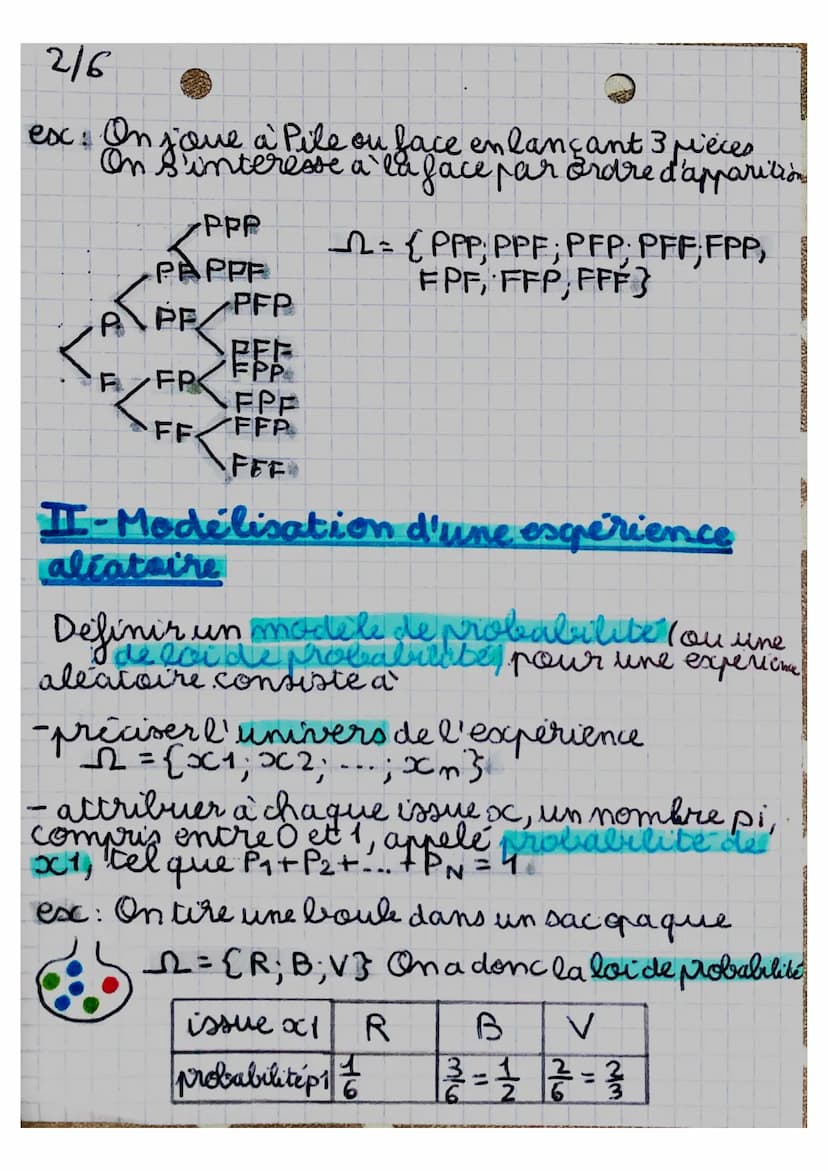 2/6
ex : On joue à Pile ou face en lançant 3 pièces
On s'interesse à la face par ordre d'apparition
PPP
PP PPF
P PF PFP
PFF
F FP FPP
FPF
FF FFP
FFF
Ω = { PPP; PPF; PFP; PFF; FPP,
FPF, FFP, FFF }
II - Modélisation d'une expérience
aléatoire
Définir un modèle de probabilité (ou une
de loi de probabilité) pour une expérience
aléatoire consiste à
- préciser l'univers de l'expérience
Ω = { x1; x2; ...; xn }
- attribuer à chaque issue x, un nombre pi,
compris entre 0 et 1, appelé probabilité de
x1, tel que P1 + P2 + ... + PN = 1
ex : On tire une boule dans un sac opaque
Ω = { R; B; V } On a donc la loi de probabilité
issue x1 R B V
probabilité p1 1/6 3/6 = 1/2 2/6 = 2/3